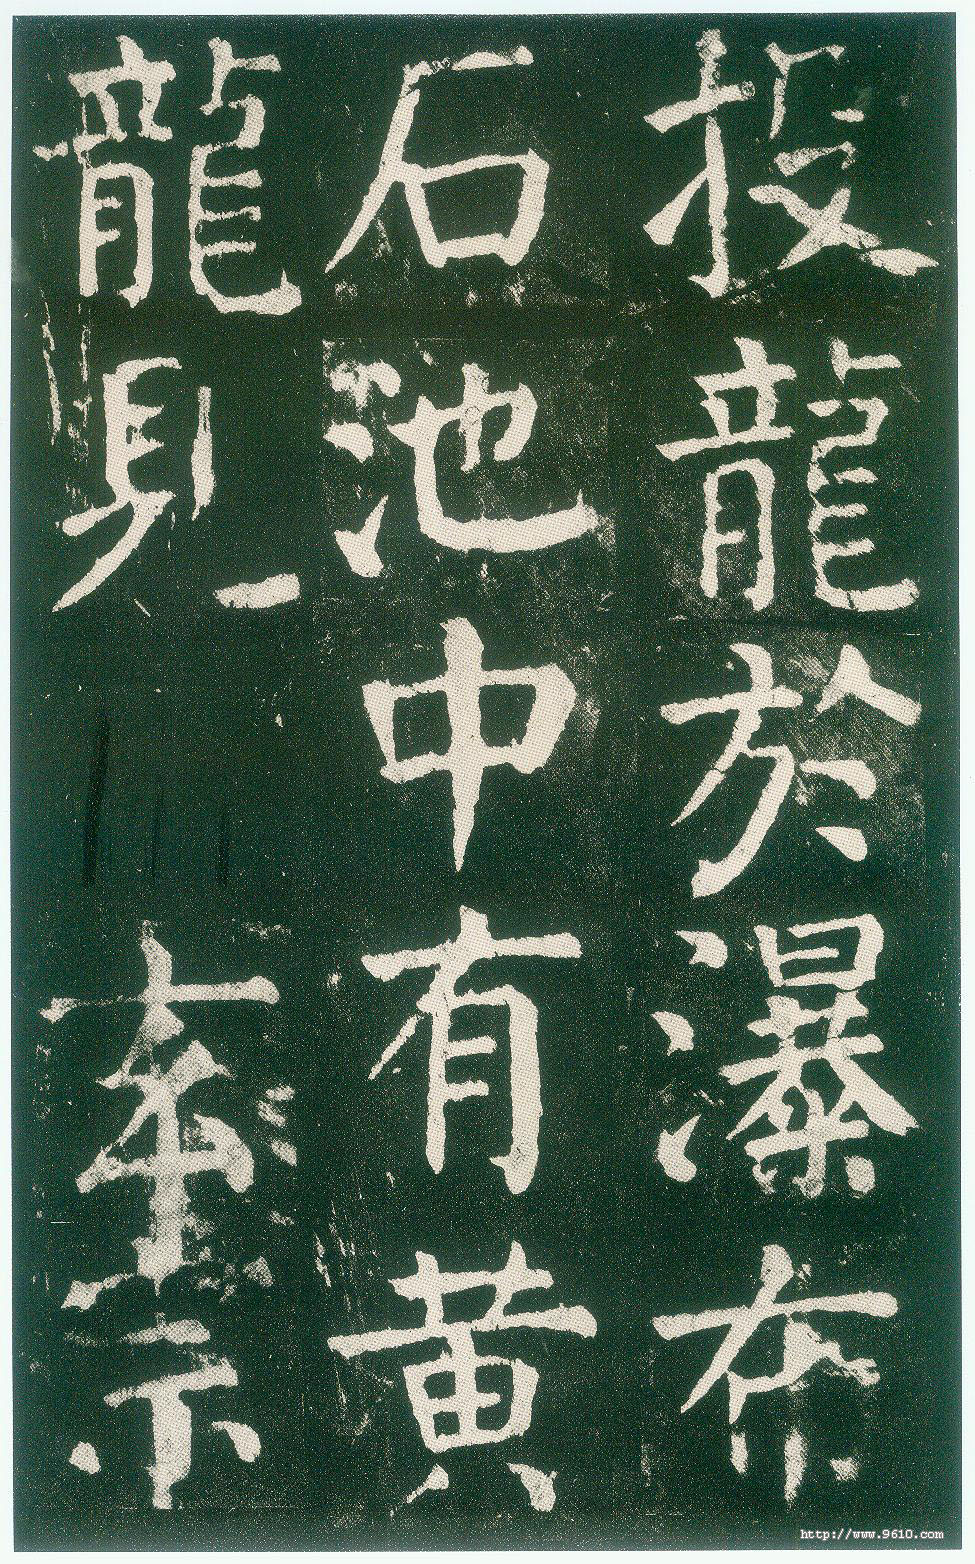 投龍於瀑布
石池中有黃
龍見宗
http://www.9610.com